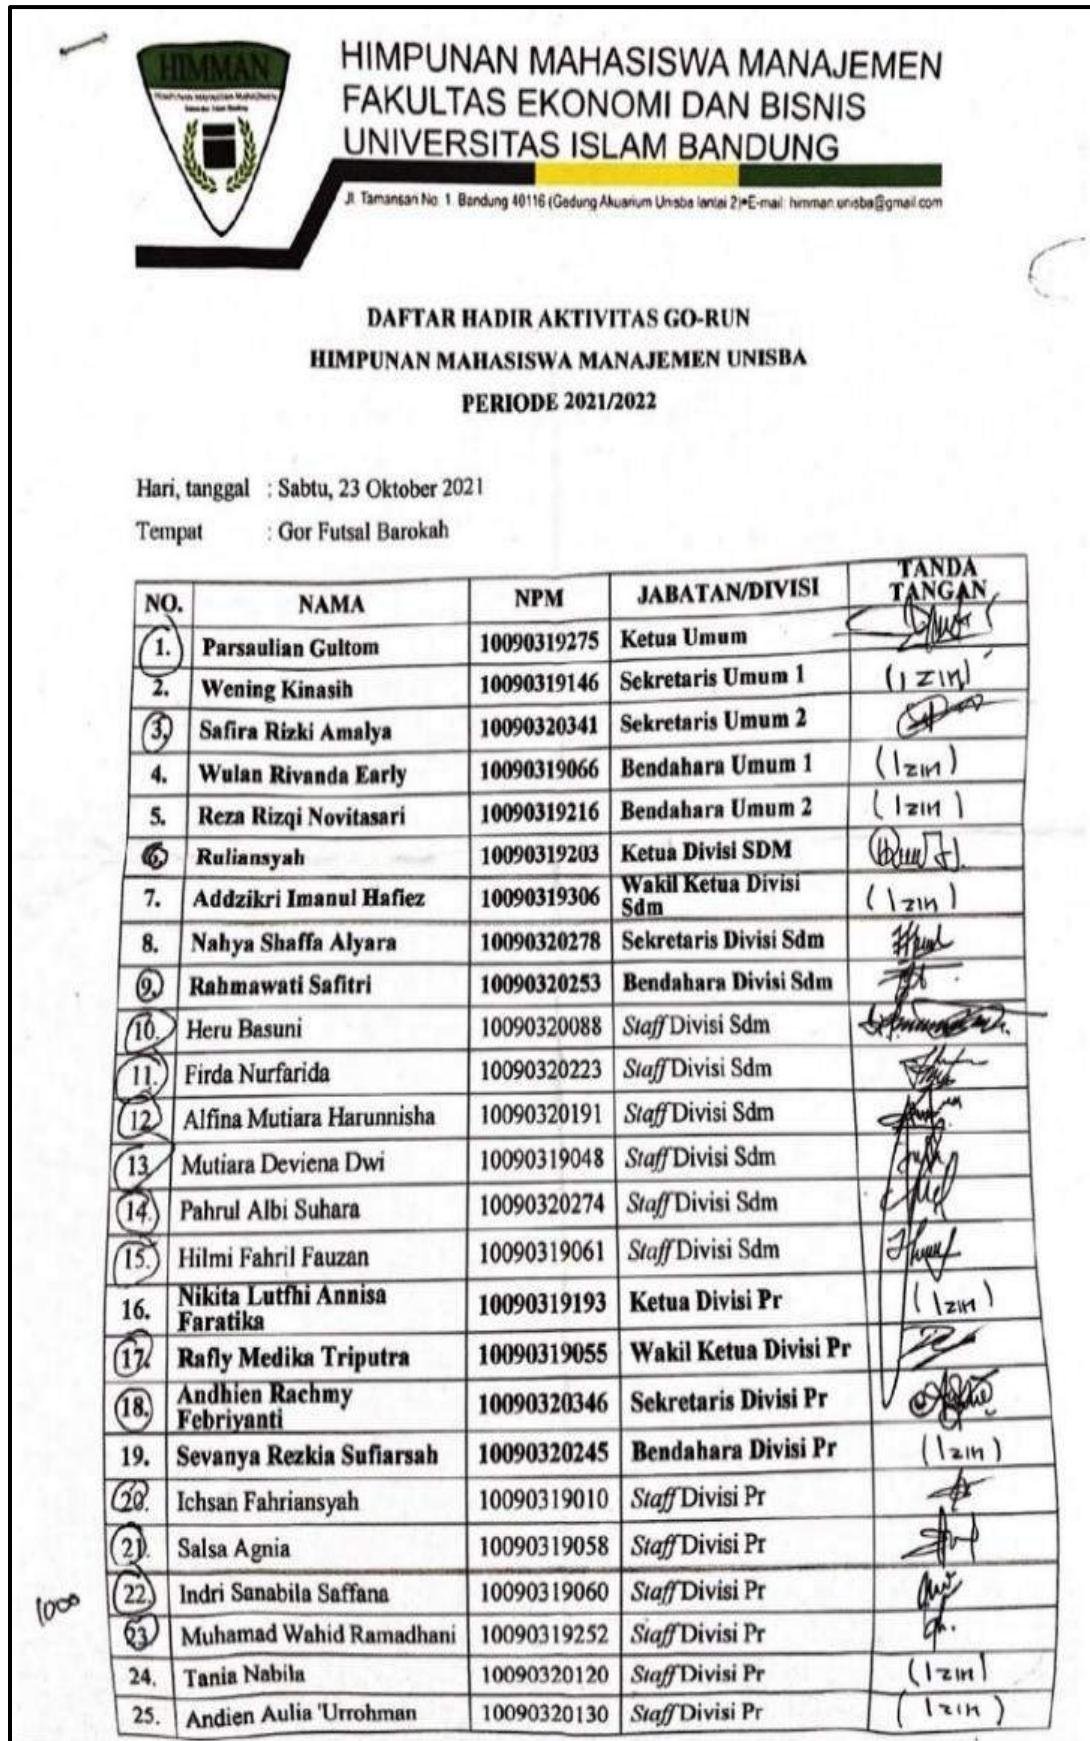 HIMMAN
HIMPUNAN MAHASISWA MANAJEMEN
HIMPUNAN MAHASISWA MANAJEMEN
FAKULTAS EKONOMI DAN BISNIS
UNIVERSITAS ISLAM BANDUNG
Jl. Tamansari No. 1 Bandung 40116 (Gedung Akuarium Unisba lantai 2)•E-mail: himman.unisba@gmail.com
DAFTAR HADIR AKTIVITAS GO-RUN
HIMPUNAN MAHASISWA MANAJEMEN UNISBA
PERIODE 2021/2022
Hari, tanggal : Sabtu, 23 Oktober 2021
Tempat : Gor Futsal Barokah
NO. NAMA NPM JABATAN/DIVISI TANDA TANGAN
1. Parsaulian Gultom 10090319275 Ketua Umum
2. Wening Kinasih 10090319146 Sekretaris Umum 1 (IZIN)
3. Safira Rizki Amalya 10090320341 Sekretaris Umum 2
4. Wulan Rivanda Early 10090319066 Bendahara Umum 1 (Izin)
5. Reza Rizqi Novitasari 10090319216 Bendahara Umum 2 (Izin)
6. Ruliansyah 10090319203 Ketua Divisi SDM
7. Addzikri Imanul Hafiez 10090319306 Wakil Ketua Divisi Sdm (Izin)
8. Nahya Shaffa Alyara 10090320278 Sekretaris Divisi Sdm
9. Rahmawati Safitri 10090320253 Bendahara Divisi Sdm
10. Heru Basuni 10090320088 Staff Divisi Sdm
11. Firda Nurfarida 10090320223 Staff Divisi Sdm
12. Alfina Mutiara Harunnisha 10090320191 Staff Divisi Sdm
13. Mutiara Deviena Dwi 10090319048 Staff Divisi Sdm
14. Pahrul Albi Suhara 10090320274 Staff Divisi Sdm
15. Hilmi Fahril Fauzan 10090319061 Staff Divisi Sdm
16. Nikita Lutfhi Annisa Faratika 10090319193 Ketua Divisi Pr (Izin)
17. Rafly Medika Triputra 10090319055 Wakil Ketua Divisi Pr
18. Andhien Rachmy Febriyanti 10090320346 Sekretaris Divisi Pr
19. Sevanya Rezkia Sufiarsah 10090320245 Bendahara Divisi Pr (Izin)
20. Ichsan Fahriansyah 10090319010 Staff Divisi Pr
21. Salsa Agnia 10090319058 Staff Divisi Pr
1000
22. Indri Sanabila Saffana 10090319060 Staff Divisi Pr
23. Muhamad Wahid Ramadhani 10090319252 Staff Divisi Pr
24. Tania Nabila 10090320120 Staff Divisi Pr (Izin)
25. Andien Aulia 'Urrohman 10090320130 Staff Divisi Pr (Izin)